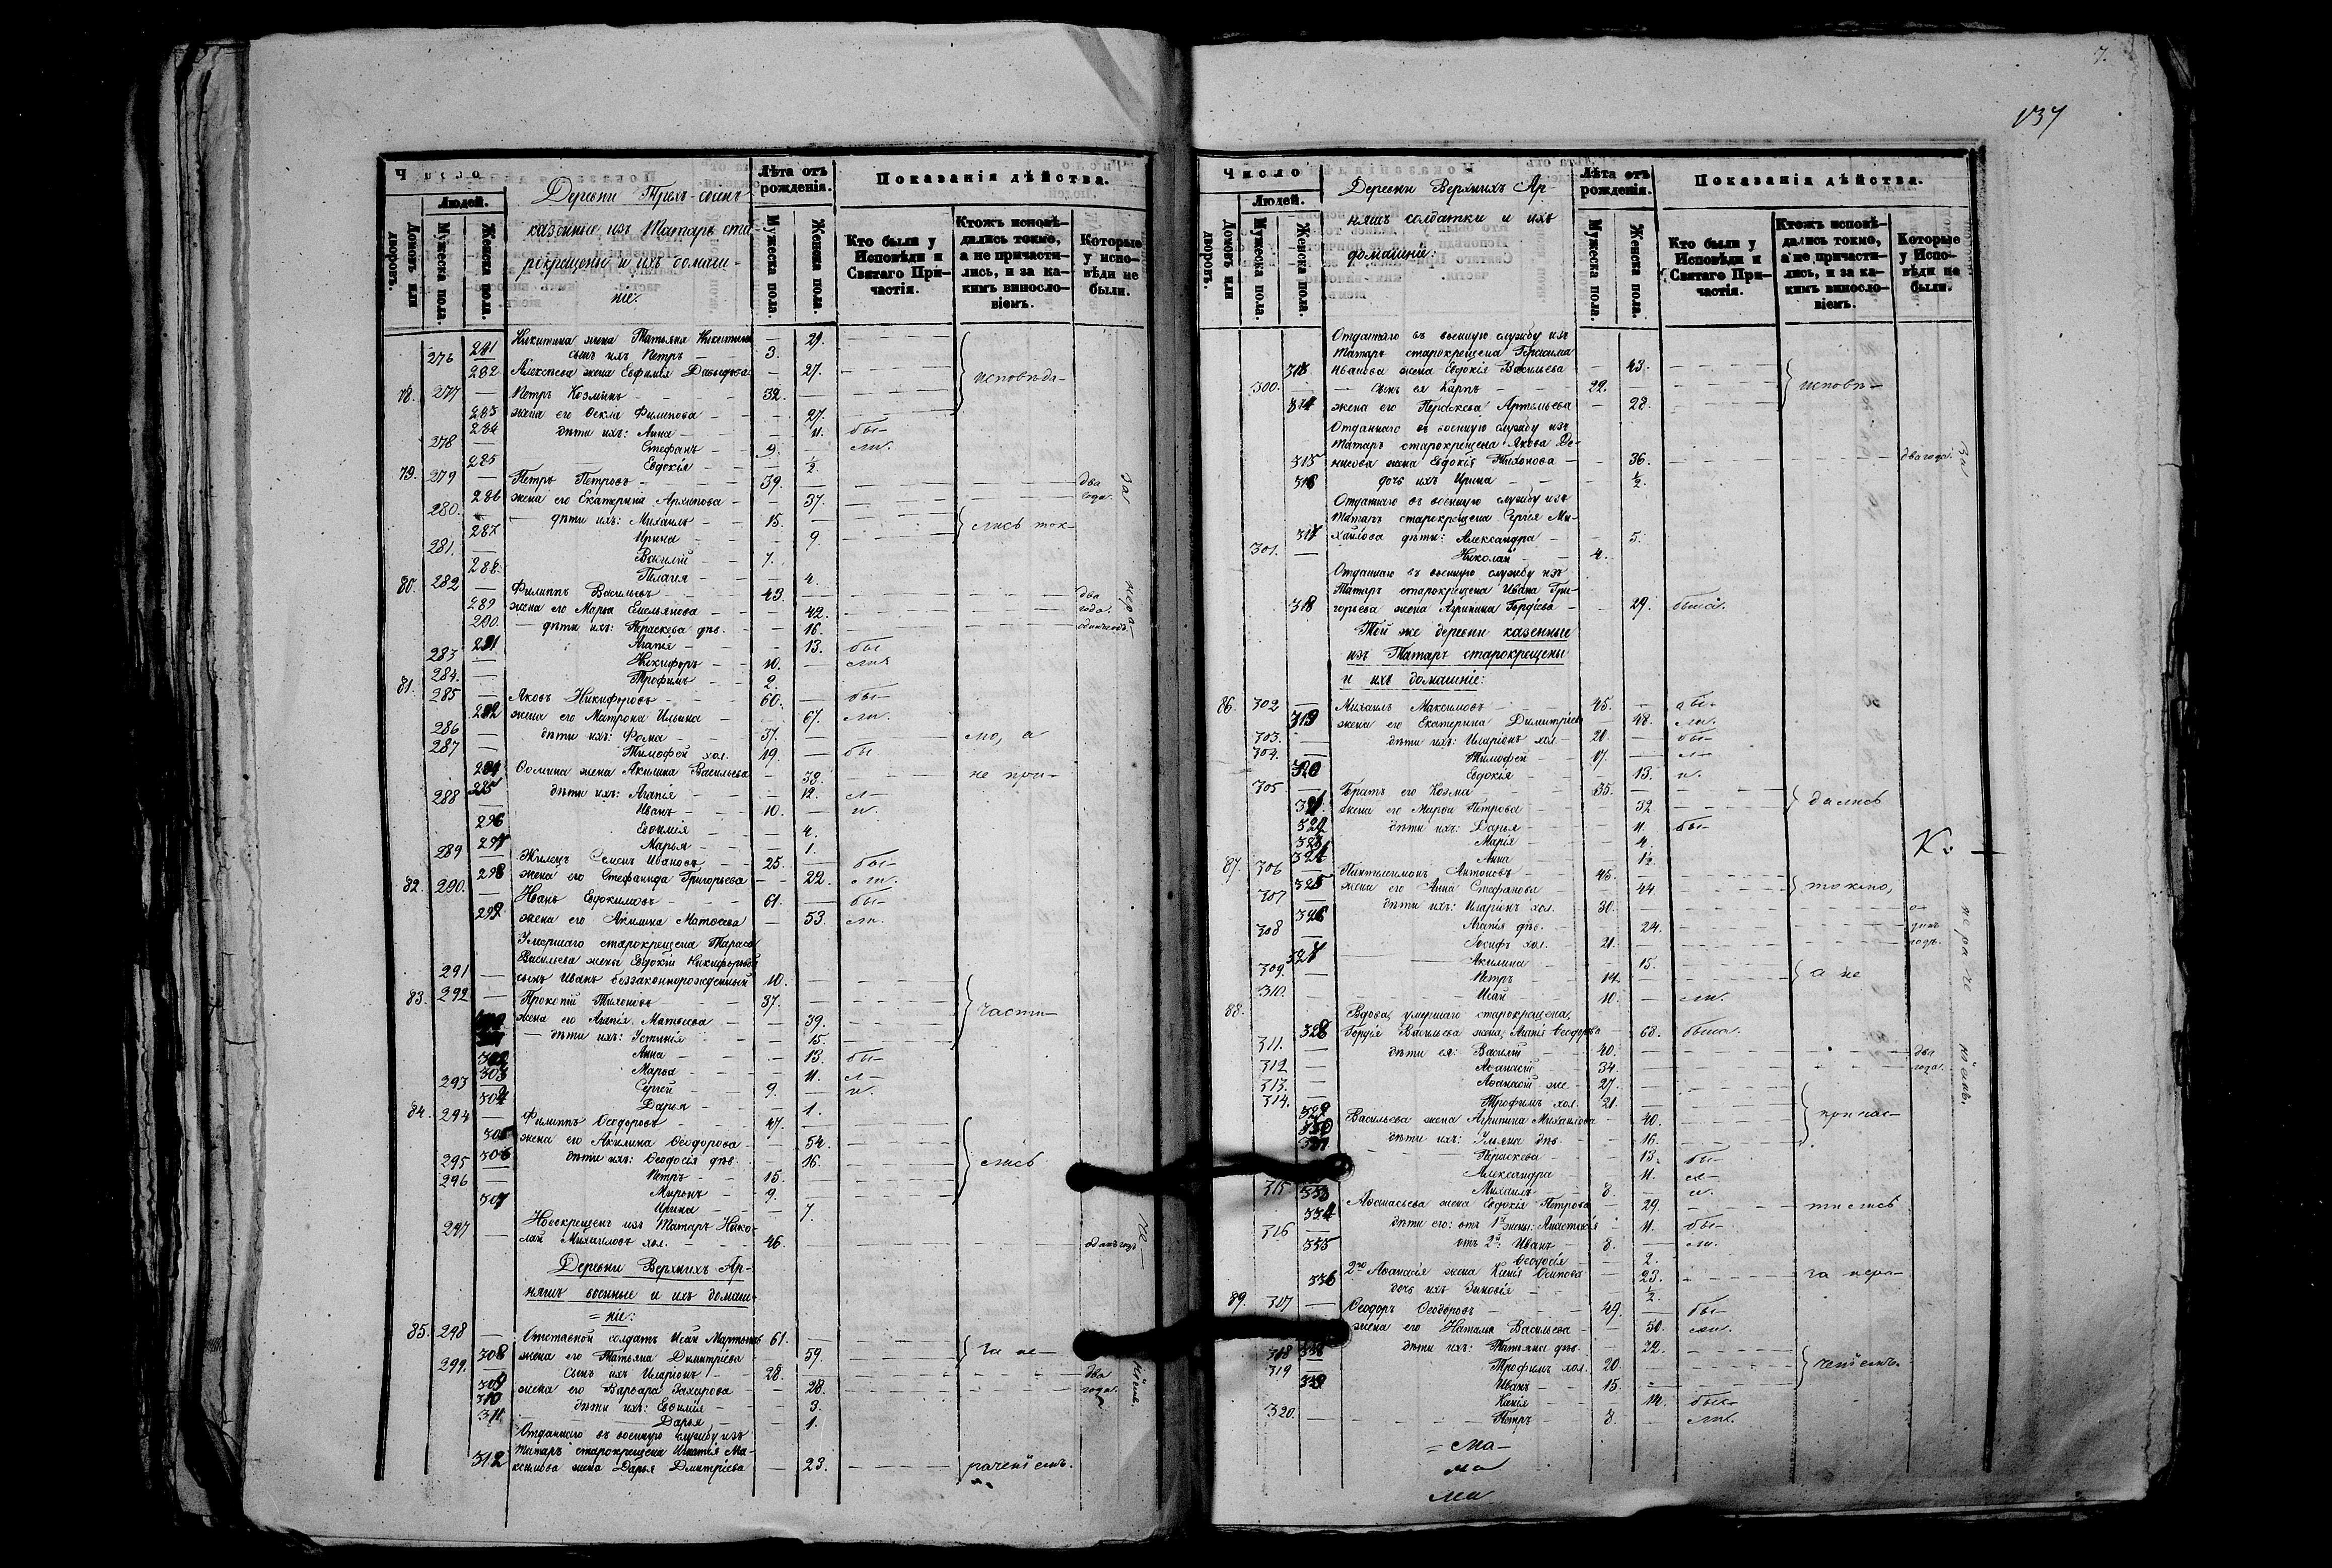 Число
Людей.
Домовъ или дворовъ.
Мужеска пола.
Женска пола.
Деревни Трехъ-сосенъ
казенные изъ Татаръ ста
рокрещены и ихъ домаш-
ніе.
Лѣта отъ рожденія.
Мужеска пола.
Женска пола.
Показанія дѣйства.
Кто были у Исповѣди и Святаго Причастія.
Ктожъ исповѣдались токмо, а не причастились, и за какимъ винословіемъ.
Которые у исповѣди не были.
Никитина жена Татьяна Никитина — 29.
276 281 сынъ ихъ Петръ — 3.
282 Алексѣева жена Евфимія Давыдова — 27. исповѣда-
78. 277 — Петръ Козминъ — 32.
283 жена его Ѳекла Филипова — 27.
284 дѣти ихъ: Анна — 11. бы-
278 — Стефанъ — 9. ли.
285 Евдокія — ½
79. 279 — Петръ Петровъ — 39. два
286 жена его Екатерина Архипова — 37. года.
280. — дѣти ихъ: Михаилъ — 15. лись ток-
287 Ирина — 9
281. — Василій — 7.
288. Пелагія — 4.
80. 282 — Филиппъ Васильевъ — 43. два
289 жена его Марѳа Емельянова — 42. года.
290. — дѣти ихъ: Параскева дѣв. — 16. одинъ годъ
291 Агапія — 13. бы
283 — Никифоръ — 10. ли
284. — Трофимъ — 2.
81. 285 — Яковъ Никифоровъ — 60. бы-
292 жена его Матрона Ильина — 67. ли.
286 — дѣти ихъ: Ѳома — 37. мо, а
287 — Тимофей хол. 19. бы
294 Ѳомина жена Акилина Васильева — 39. не при-
295 дѣти ихъ: Агапія — 12. л-
288 — Иванъ — 10. и.
296 Евѳимія — 4.
297 Марья — 1.
289 — Жилецъ Семенъ Ивановъ — 25. бы-
298 жена его Стефанида Григорьева — 22. ли.
82. 290. — Иванъ Евдокимовъ — 61. бы-
299 жена его Акилина Матѳеева — 53. ли.
Умершаго старокрещена Тараса
Васильева жены Евдокіи Никифоровой
291 — сынъ Иванъ беззаконнорожденный 10.
83. 292 — Прокопій Тихоновъ — 37.
жена его Агапія Матвеева — 39. части-
дѣти ихъ: Устинія — 15.
302 Анна — 13. бы-
303 Марѳа — 11. л-
293 — Сергей — 9. и.
304 Дарья — 1.
84. 294 — Филиппъ Ѳедоровъ — 47.
305 жена его Акилина Ѳеодорова — 54.
306 дѣти ихъ: Ѳеодосія дѣв. — 16. лись
295 — Петръ — 15.
296 — Миронъ — 9.
307 Ирина — 7.
Новокрещенъ изъ Татаръ Нико-
297 — лай Михаиловъ хол. — 46. одинъ годъ
Деревни Верхнихъ Ар-
няшъ военные и ихъ домаш-
=ніе:
85. 298 — Отставной солдатъ Исаи Мартыновъ 61.
308 жена его Татьяна Димитріева — 59. за не-
299. — Сынъ ихъ Иларіонъ — 28. два
309 жена его Варвара Захарова — 28. года.
310 дѣти ихъ: Евѳимія — 3.
311 Дарья — 1.
Отданнаго въ военную службу изъ
Татаръ старокрещена Игнатія Ма-
312 ксимова жена Дарья Дмитріева — 23. раченіемъ.
За
нера-
че-
ніемъ.
7.
Число
Людей.
Домовъ или дворовъ.
Мужеска пола.
Женска пола.
Деревни Верхнихъ Ар-
няшъ солдатки и ихъ
домашніе:
Лѣта отъ рожденія.
Мужеска пола.
Женска пола.
Показанія дѣйства.
Кто были у Исповѣди и Святаго Причастія.
Ктожъ исповѣдались токмо, а не причастились, и за какимъ винословіемъ.
Которые у Исповѣди не были.
Отданнаго въ военную службу изъ
Татаръ старокрещена Герасима
313 Иванова жена Евдокія Васильева — 43.
300. — сынъ ея Карпъ — 22. исповѣ-
314 жена его Параскева Артемьева — 28.
Отданнаго въ военную службу изъ
Татаръ старокрещена Якова Де-
315 нисова жена Евдокія Тихонова — 36. два года.
316 дочь ихъ Ирина — ½.
Отданнаго въ военную службу изъ
Татаръ старокрещена Сергея Ми-
317 хайлова дѣти: Александра — 5.
301. — Николай — 4.
Отданнаго въ военную службу изъ
Татаръ старокрещена Ивана Гри-
318 горьева жена Агрипина Гордіева — 29. была.
Той же деревни казенные
изъ Татаръ старокрещены
и ихъ домашніе:
86. 302 — Михаилъ Максимовъ — 45. бы-
319 жена его Екатерина Димитріева — 48. ли.
303. — дѣти ихъ: Иларіонъ хол. 20. бы-
304. — Тимофей — 17. л-
320 Евдокія — 13. и.
305 — Братъ его Козма — 35.
321 жена его Марѳа Петрова — 32 дались
322 дѣти ихъ: Дарья — 11. бы-
323 Марія — 4.
324 Анна — 1½.
87. 306 — Пантелеимонъ Антоновъ — 45.
325 жена его Анна Стефанова — 44. токмо,
307 — дѣти ихъ: Иларіонъ хол. 30. о-
326 Агапія дѣв. — 24. динъ
308 — Іосифъ хол. 21. годъ.
327 Акилина — 15.
309. — Петръ — 14. а не
310. — Исаи — 10. ли.
88. Вдова, умершаго старокрещена,
328 Гордія Васильева жена, Агапія Ѳеодорова — 68. была.
311. — дѣти ея: Василій — 40. два
312 — Аѳанасій — 34. года.
313. — Аѳанасій же — 27.
314. — Трофимъ хол. 21.
329 Васильева жена Агрипина Михаилова — 40. причас-
330 дѣти ихъ: Ульяна дѣв. — 16.
331 Параскева — 13. бы-
Александра — 11. л-
315 — Михаилъ — 8. и.
333 Аѳанасьева жена Евдокія Петрова — 29. тились
334 дѣти его: отъ 1й жены: Анастасія — 11. бы-
316 — отъ 2й: Иванъ — 8. ли.
335 Ѳеодосія — 2.
336 2го Аѳанасія жена Ксенія Осипова — 23. за нера-
дочь ихъ Зиновія — ½
89. 317 — Ѳеодоръ Ѳеодоровъ — 49. бы-
жена его Наталья Васильева — 50. ли.
338 дѣти ихъ: Татьяна дѣв. — 22.
318 — Трофимъ хол. 20. ченіемъ.
319 — Иванъ — 15.
339 Ксенія — 14. бы-
320. — Петръ — 8. ли.
К.
За
нераче
ніемъ.